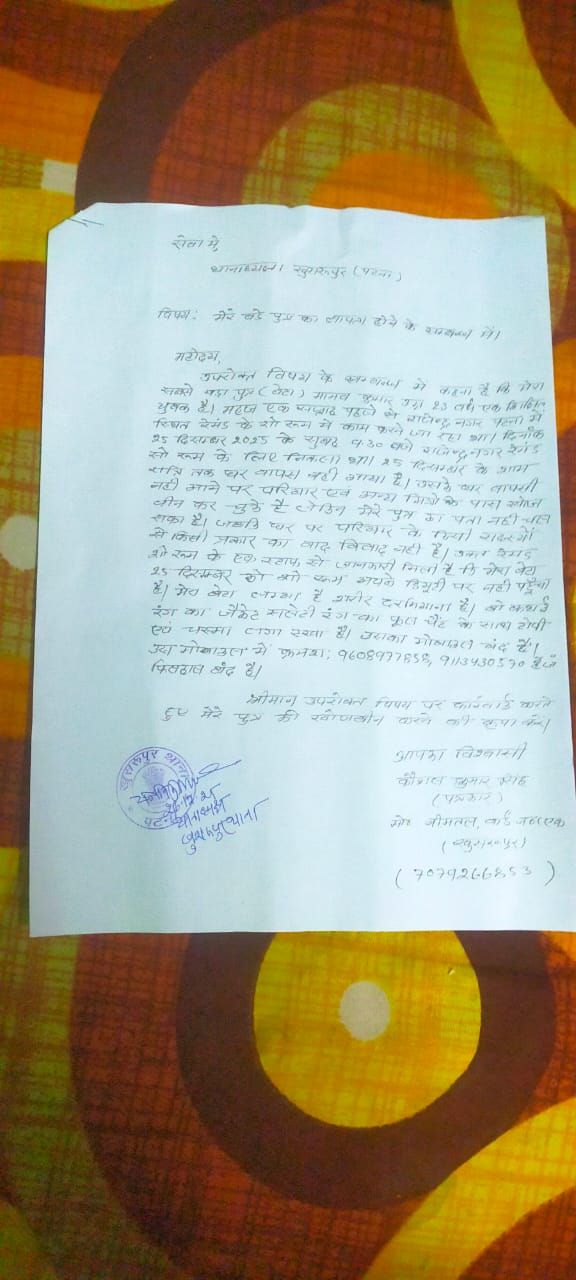 सेवा में,
थानाध्यक्ष खुसरूपुर (पटना)
विषय: मेरे बड़े पुत्र का लापता होने के सम्बन्ध में।
महोदय,
उपरोक्त विषय के सम्बन्ध में कहना है कि मेरा
सबसे बड़ा पुत्र (बेटा) मानव कुमार उम्र 23 वर्ष एक शिक्षित
युवक है। महज एक सप्ताह पहले से राजेन्द्र नगर पटना में
स्थित रेमंड के शो रूम में काम करने जा रहा था। दिनांक
25 दिसम्बर 2025 के सुबह 9.30 बजे राजेन्द्र नगर रेमंड
शो रूम के लिए निकला था। 25 दिसम्बर के शाम
रात्रि तक घर वापस नहीं आया है। उसके घर वापसी
नहीं आने पर परिवार एवं अन्य मित्रों के पास खोज
बीन कर चुके हैं लेकिन मेरे पुत्र का पता नहीं चल
सका है। जबकि घर पर परिवार के किसी सदस्यों
से किसी प्रकार का वाद विवाद नहीं है। उक्त रेमंड
शो रूम के एक स्टाफ से जानकारी मिली है कि मेरा बेटा
25 दिसम्बर को शो रूम अपने डियूटी पर नहीं पहुँचा
है। मेरा बेटा लम्बा है शरीर दरमियाना है। वो कत्थई
रंग का जैकेट सलेटी रंग का फूल पैंट के साथ टोपी
एवं चस्मा लगा रखा है। उसका मोबाइल बंद है।
उस मोबाइल में क्रमश: 9608977858, 9113430590 है जो
फिलहाल बंद है।
श्रीमान उपरोक्त विषय पर कार्रवाई करते
हुए मेरे पुत्र की खोजबीन करने की कृपा करें।
आपका विश्वासी
कौशल कुमार सिंह
(पत्रकार)
मो० जीमतल, वार्ड नं० एक
(खुसरूपुर)
(7079266853)
खुसरूपुर थाना
पटना
26.12.25
थानाध्यक्ष
खुसरूपुर थाना